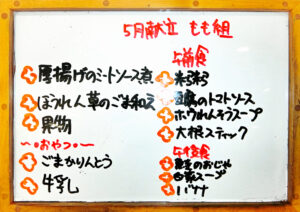 5月献立 もも組
厚揚げのミートソース煮
ほうれん草のごま和え
果物
〜おやつ〜
ごまかりんとう
牛乳
午前食
のトマトソース
ホウれんそうスープ
大根スティック
午後食
のおじや
スープ
バナナ